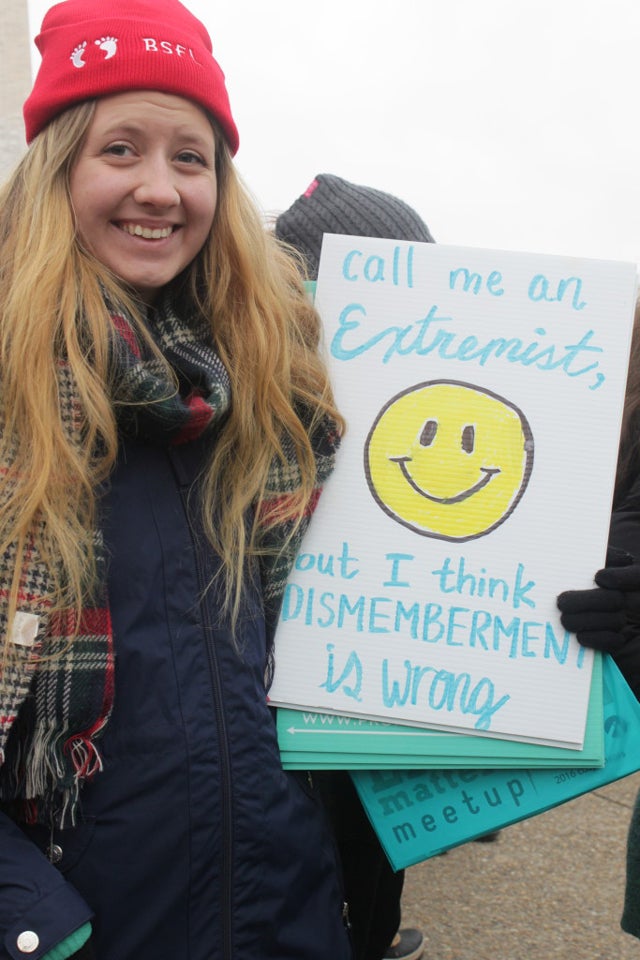 BSFL
call me an
Extremist,
but I think
DISMEMBERMENT
is wrong
matte
meetup
2016